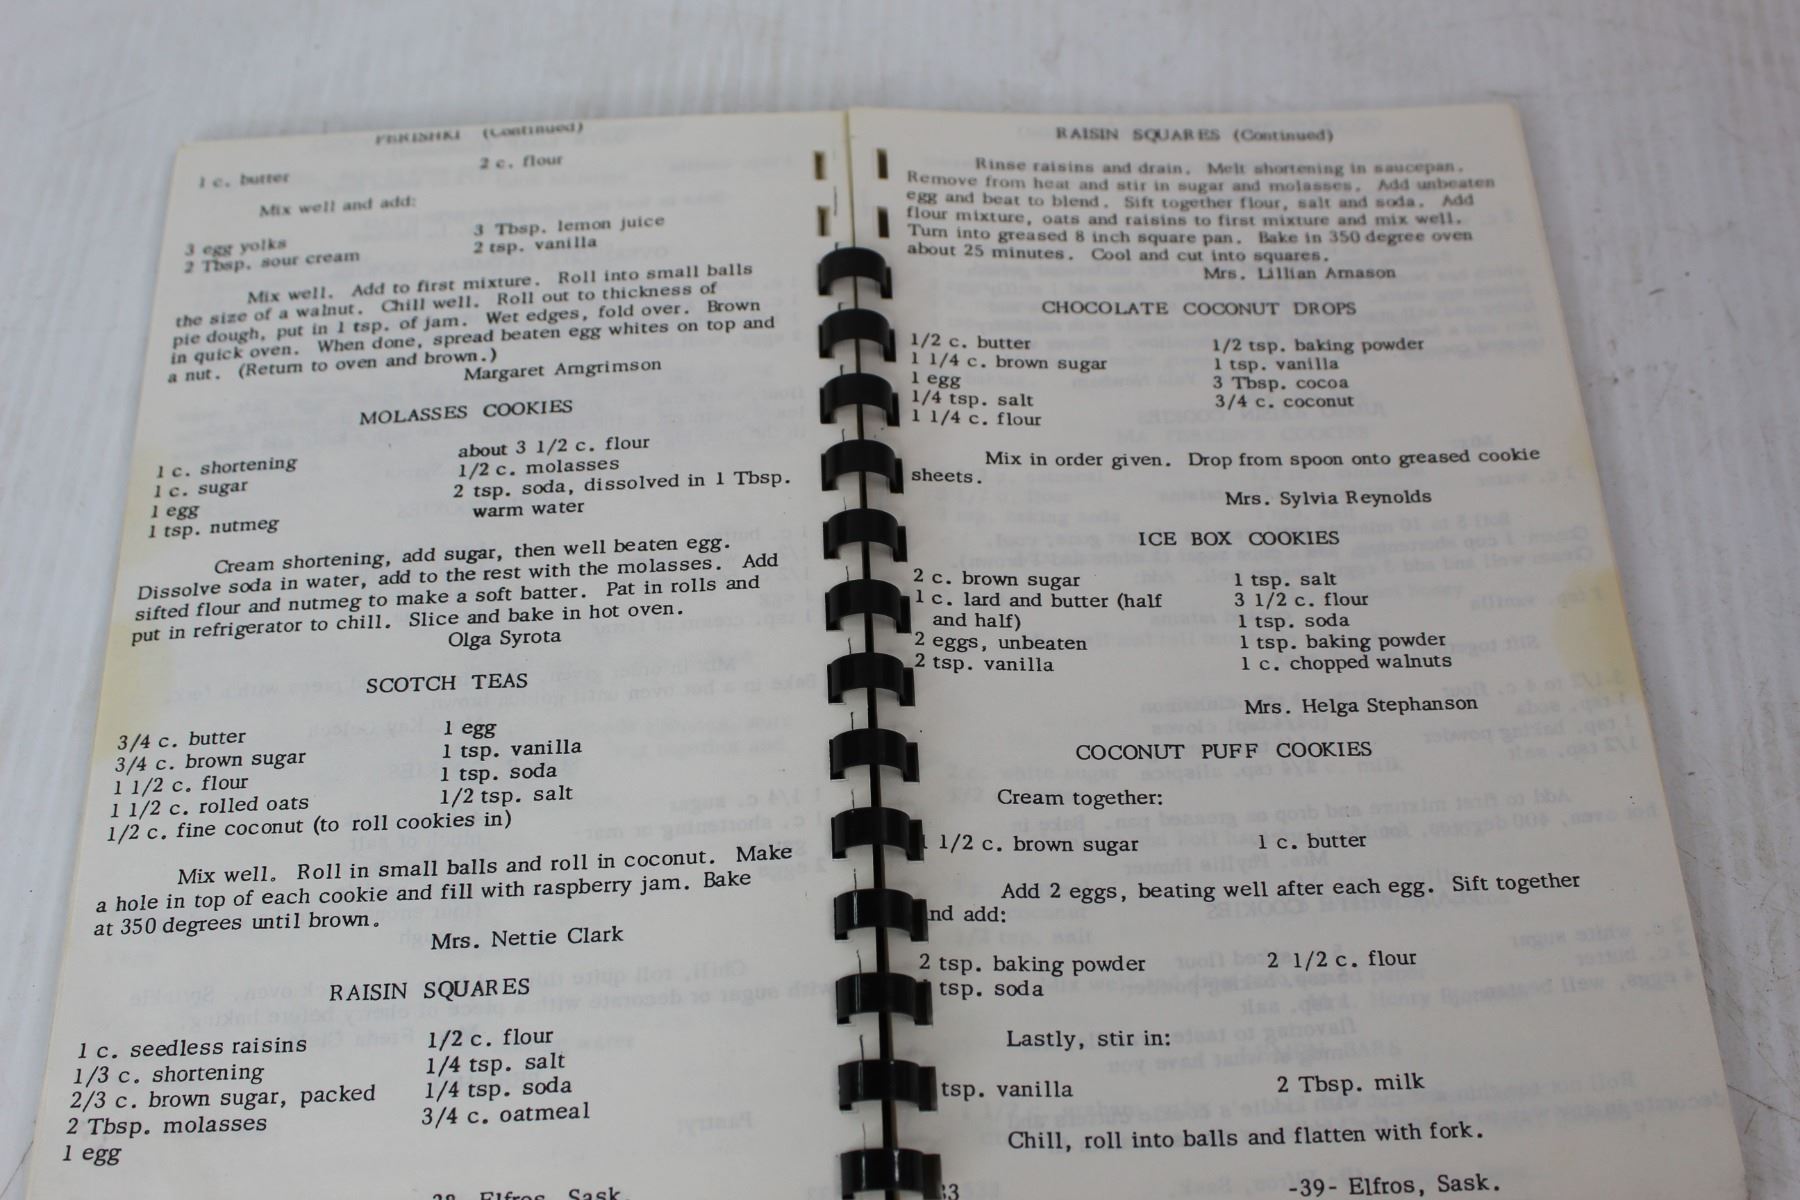 PERISHKI (Continued)
1 c. butter 2 c. flour
Mix well and add:
3 egg yolks 3 Tbsp. lemon juice
2 Tbsp. sour cream 2 tsp. vanilla
Mix well. Add to first mixture. Roll into small balls
the size of a walnut. Chill well. Roll out to thickness of
pie dough, put in 1 tsp. of jam. Wet edges, fold over. Brown
in quick oven. When done, spread beaten egg whites on top and
a nut. (Return to oven and brown.)
Margaret Arngrimson
MOLASSES COOKIES
1 c. shortening about 3 1/2 c. flour
1 c. sugar 1/2 c. molasses
1 egg 2 tsp. soda, dissolved in 1 Tbsp.
1 tsp. nutmeg warm water
Cream shortening, add sugar, then well beaten egg.
Dissolve soda in water, add to the rest with the molasses. Add
sifted flour and nutmeg to make a soft batter. Pat in rolls and
put in refrigerator to chill. Slice and bake in hot oven.
Olga Syrota
SCOTCH TEAS
3/4 c. butter 1 egg
3/4 c. brown sugar 1 tsp. vanilla
1 1/2 c. flour 1 tsp. soda
1 1/2 c. rolled oats 1/2 tsp. salt
1/2 c. fine coconut (to roll cookies in)
Mix well. Roll in small balls and roll in coconut. Make
a hole in top of each cookie and fill with raspberry jam. Bake
at 350 degrees until brown.
Mrs. Nettie Clark
RAISIN SQUARES
1 c. seedless raisins 1/2 c. flour
1/3 c. shortening 1/4 tsp. salt
2/3 c. brown sugar, packed 1/4 tsp. soda
2 Tbsp. molasses 3/4 c. oatmeal
1 egg
Elfros, Sask.
RAISIN SQUARES (Continued)
Rinse raisins and drain. Melt shortening in saucepan.
Remove from heat and stir in sugar and molasses. Add unbeaten
egg and beat to blend. Sift together flour, salt and soda. Add
flour mixture, oats and raisins to first mixture and mix well.
Turn into greased 8 inch square pan. Bake in 350 degree oven
about 25 minutes. Cool and cut into squares.
Mrs. Lillian Arnason
CHOCOLATE COCONUT DROPS
1/2 c. butter 1/2 tsp. baking powder
1 1/4 c. brown sugar 1 tsp. vanilla
1 egg 3 Tbsp. cocoa
1/4 tsp. salt 3/4 c. coconut
1 1/4 c. flour
Mix in order given. Drop from spoon onto greased cookie
sheets.
Mrs. Sylvia Reynolds
ICE BOX COOKIES
2 c. brown sugar 1 tsp. salt
1 c. lard and butter (half 3 1/2 c. flour
and half) 1 tsp. soda
2 eggs, unbeaten 1 tsp. baking powder
2 tsp. vanilla 1 c. chopped walnuts
Mrs. Helga Stephanson
COCONUT PUFF COOKIES
Cream together:
1 1/2 c. brown sugar 1 c. butter
Add 2 eggs, beating well after each egg. Sift together
and add:
2 tsp. baking powder 2 1/2 c. flour
tsp. soda
Lastly, stir in:
tsp. vanilla 2 Tbsp. milk
Chill, roll into balls and flatten with fork.
33 -39- Elfros, Sask.